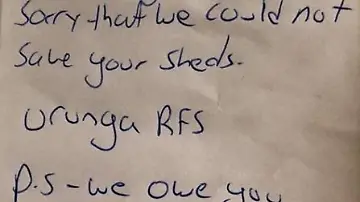 Sorry that we could not
Save your sheds.
Urunga RFS
P.S - we owe you